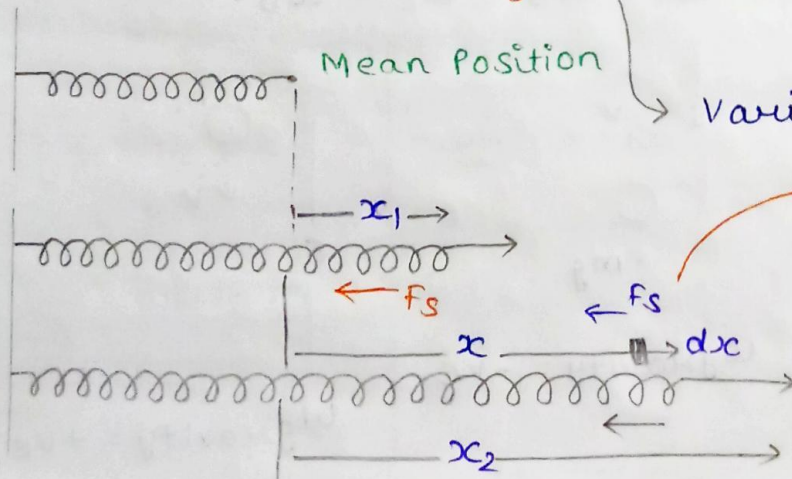 Mean Position
Vari
x₁
Fs
Fs
x
dx
x₂